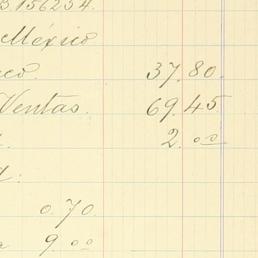 B 156254.
México
37.80.
Ventas. 69.45
2.00
0.70
9.00